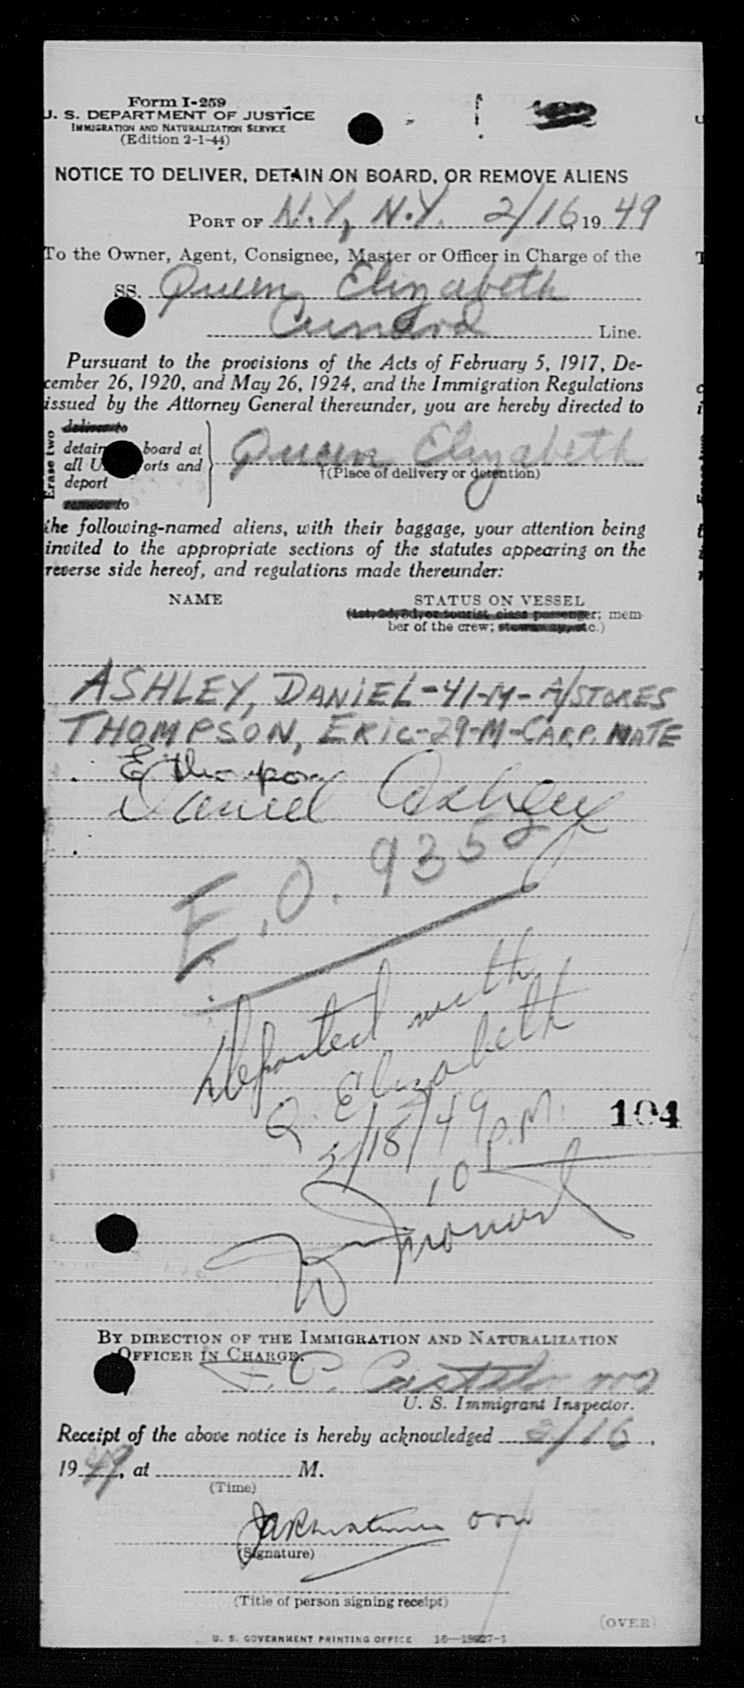 Form I-259
U. S. DEPARTMENT OF JUSTICE
IMMIGRATION AND NATURALIZATION SERVICE
(Edition 2-1-44)
NOTICE TO DELIVER, DETAIN ON BOARD, OR REMOVE ALIENS
PORT OF N.Y, N.Y. 2/16 19 49
To the Owner, Agent, Consignee, Master or Officer in Charge of the
SS. Queen Elizabeth
Cunard Line.
Pursuant to the provisions of the Acts of February 5, 1917, De-
cember 26, 1920, and May 26, 1924, and the Immigration Regulations
issued by the Attorney General thereunder, you are hereby directed to
Erase two
deliver to
detain board at
all U orts and
deport
remove to
Queen Elizabeth
†(Place of delivery or detention)
the following-named aliens, with their baggage, your attention being
invited to the appropriate sections of the statutes appearing on the
reverse side hereof, and regulations made thereunder:
NAME STATUS ON VESSEL
(1st, 2d, 3d, or tourist class passenger; mem-
ber of the crew; stowaway, etc.)
ASHLEY, DANIEL-41-M-A/STORES
THOMPSON, ERIC-29-M-CARP. MATE
E Thompson
Daniel Ashley
E.O. 9352
Departed with
Q. Elizabeth
2/18/49
10 P.M.
104
BY DIRECTION OF THE IMMIGRATION AND NATURALIZATION
OFFICER IN CHARGE.
U. S. Immigrant Inspector.
Receipt of the above notice is hereby acknowledged 2/16,
19 49, at M.
(Time)
(Signature)
(Title of person signing receipt)
(OVER)
U. S. GOVERNMENT PRINTING OFFICE